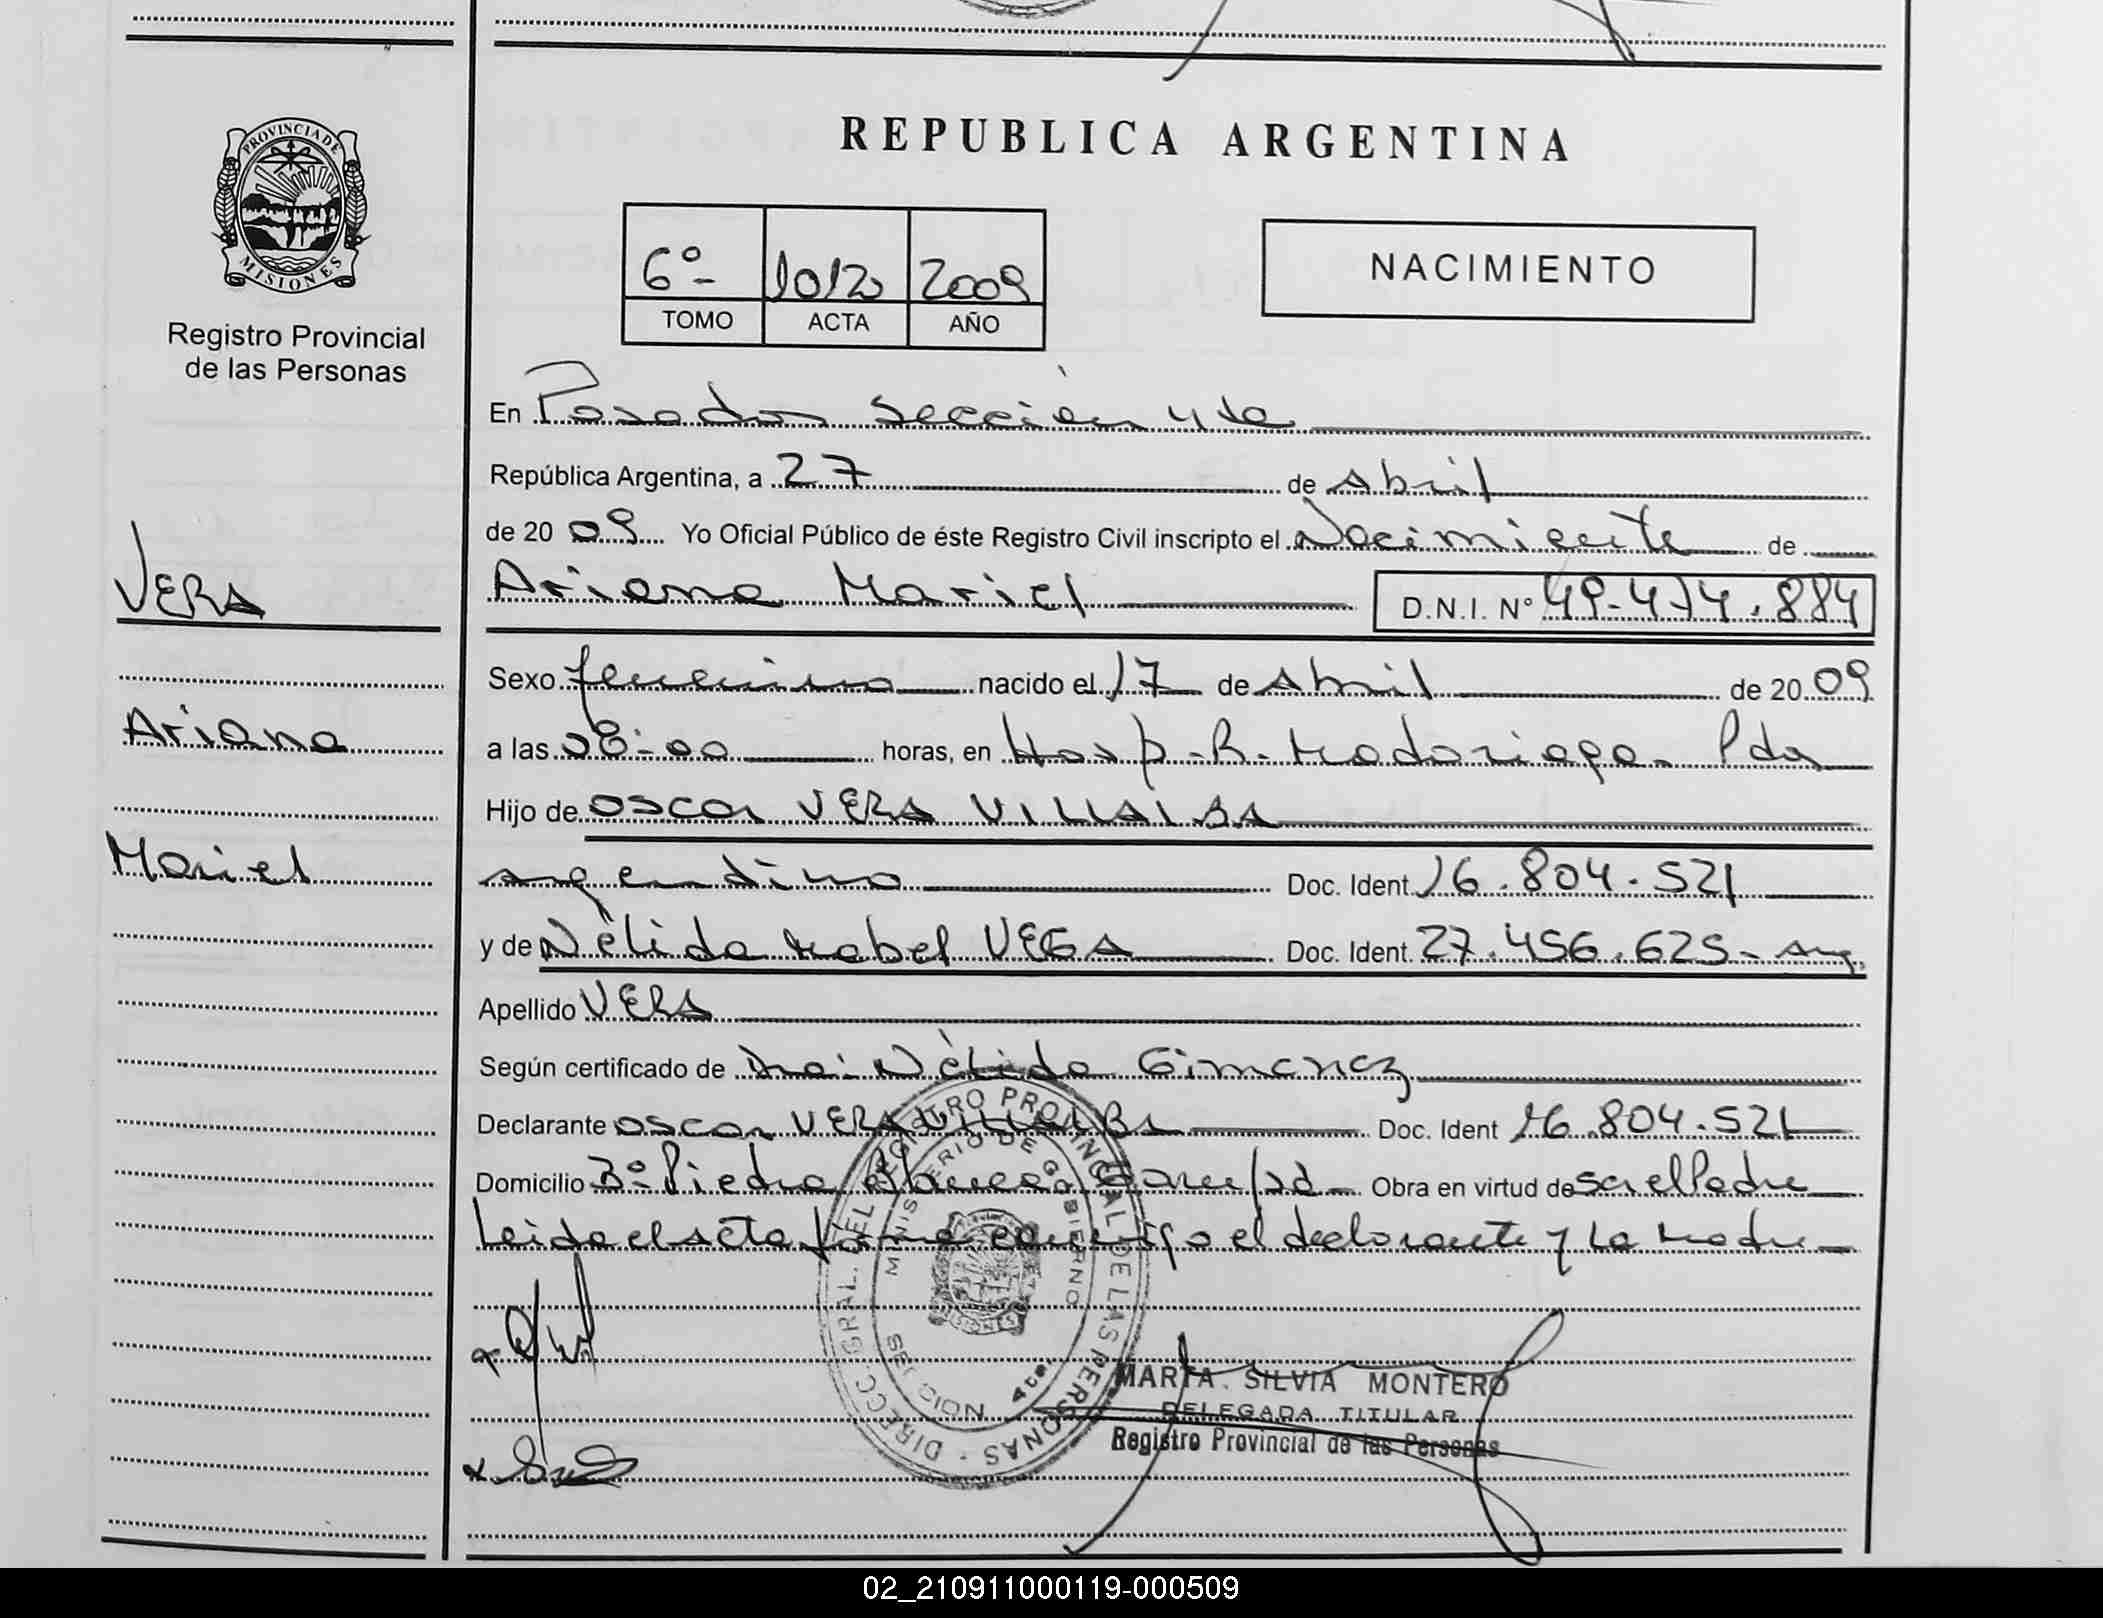 REPUBLICA ARGENTINA
PROVINCIA DE
MISIONES
Registro Provincial
de las Personas
6º- 1012 2009
TOMO ACTA AÑO
NACIMIENTO
En Posadas Sección 4ta
República Argentina, a 27 de Abril
de 2009 Yo Oficial Público de éste Registro Civil inscripto el Nacimiento de
VERA
Ariana Mariel D.N.I. Nº 49.474.884
Sexo femenino nacido el 17 de Abril de 2009
Ariana
a las 08:00 horas, en Hosp. R. Madariaga. Pdas
Hijo de Oscar VERA VILLALBA
Mariel
argentino Doc. Ident. 16.804.521
y de Nélida Mabel VEGA Doc. Ident. 27.456.625- Arg.
Apellido VERA
Según certificado de Dra. Nélida Gimenez
Declarante Oscar VERA VILLALBA Doc. Ident 16.804.521
Domicilio Bº Piedra Blanca Obra en virtud de Ser el Padre
Leida el acta firma conmigo el declarante y La Madre
DIRECC. GRAL. DEL REGISTRO PROVINCIAL DE LAS PERSONAS
MINISTERIO DE GOBIERNO
SECCION 4ta.
MARTA SILVIA MONTERO
DELEGADA TITULAR
Registro Provincial de las Personas
02_210911000119-000509